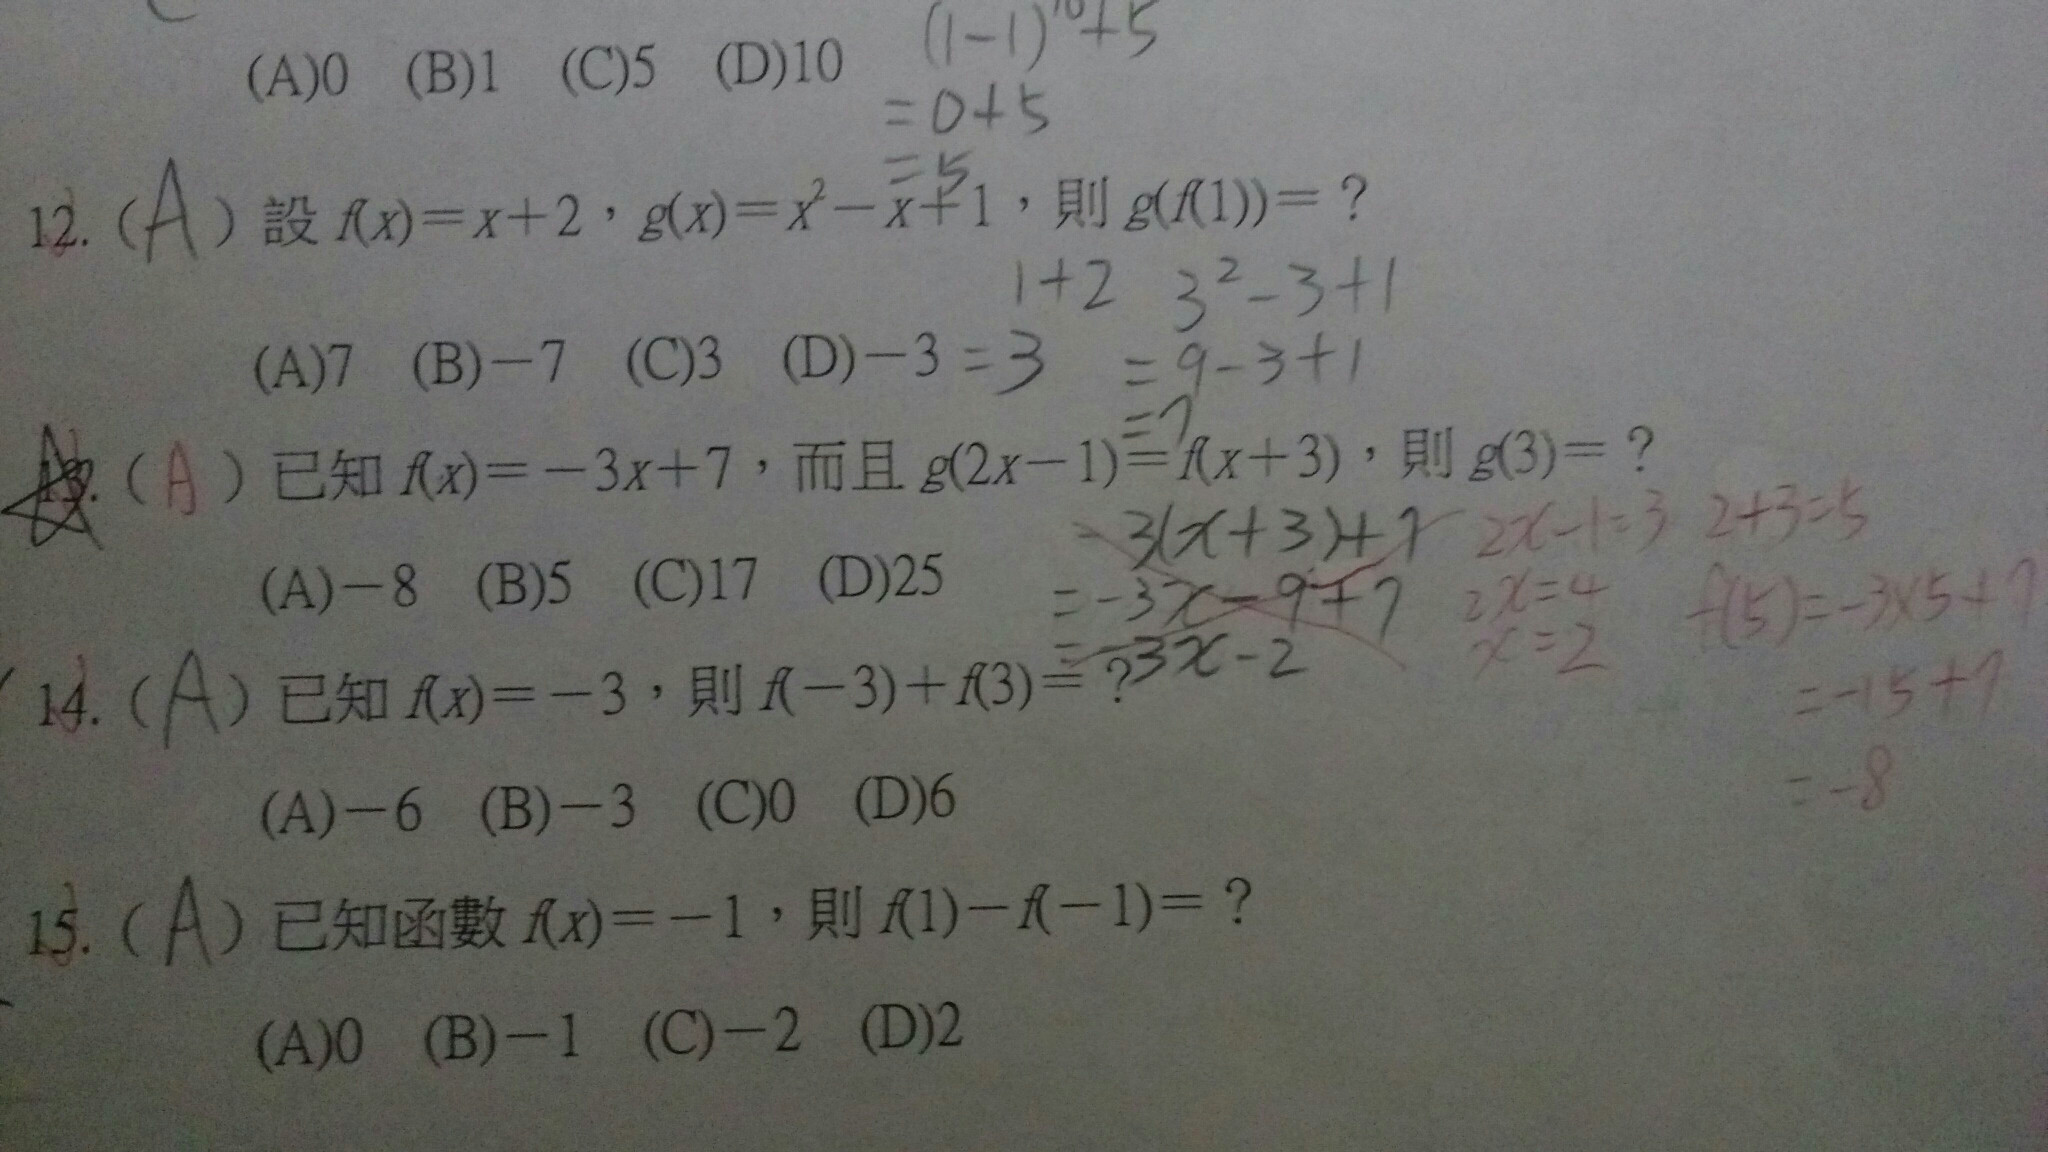 (1-1)¹⁰+5
(A)0 (B)1 (C)5 (D)10
=0+5
=5
12. (A) 設 f(x)=x+2，g(x)=x²-x+1，則 g(f(1))=？
1+2 3²-3+1
(A)7 (B)-7 (C)3 (D)-3 =3 =9-3+1
=7
13. (A) 已知 f(x)=-3x+7，而且 g(2x-1)=f(x+3)，則 g(3)=？
-3(x+3)+7 2x-1=3 2+3=5
(A)-8 (B)5 (C)17 (D)25 =-3x-9+7 2x=4 f(5)=-3×5+7
=-3x-2 x=2
14. (A) 已知 f(x)=-3，則 f(-3)+f(3)=？
=-15+7
(A)-6 (B)-3 (C)0 (D)6 =-8
15. (A) 已知函數 f(x)=-1，則 f(1)-f(-1)=？
(A)0 (B)-1 (C)-2 (D)2